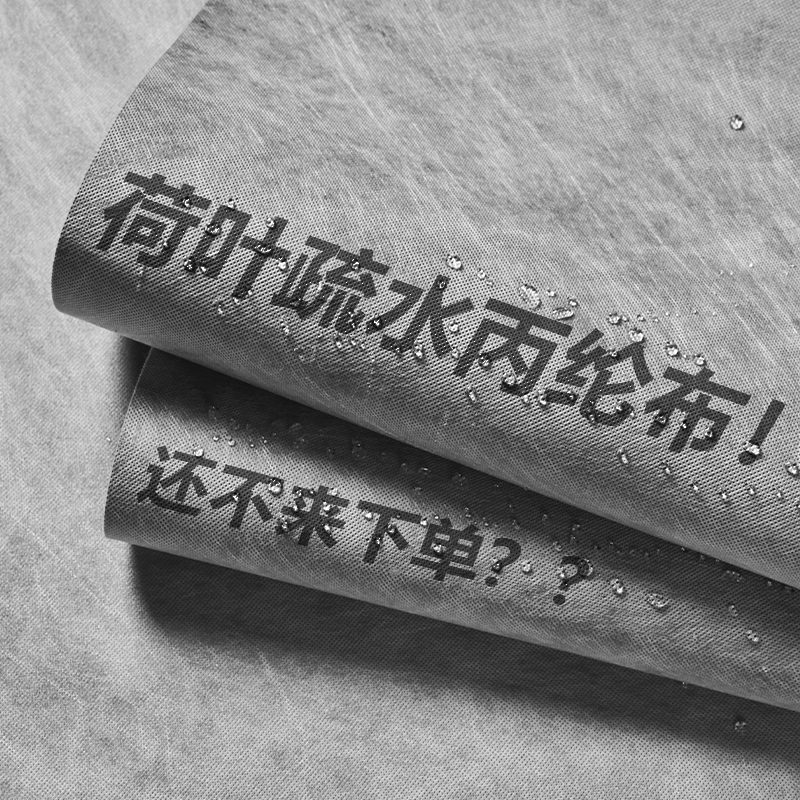 荷叶疏水丙纶布！
还不来下单？？